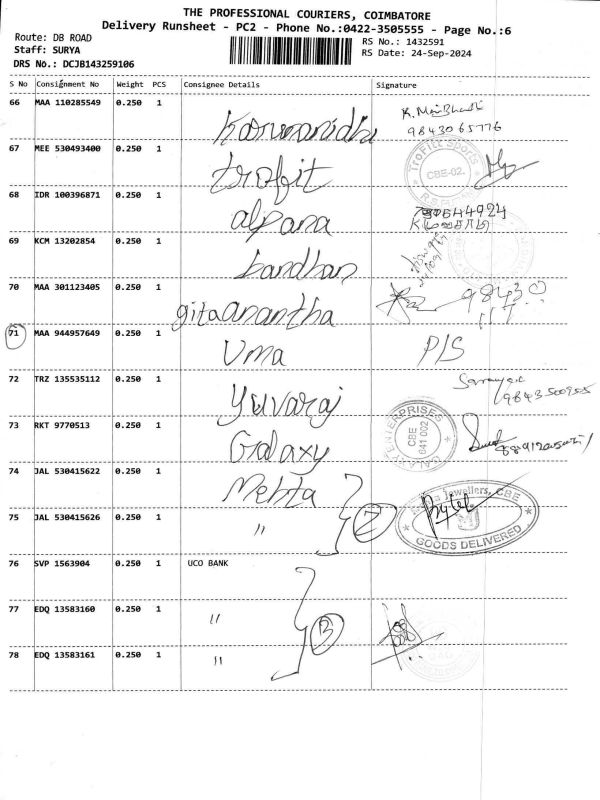 THE PROFESSIONAL COURIERS, COIMBATORE
Delivery Runsheet - PC2 - Phone No.:0422-3505555 - Page No.:6
Route: DB ROAD
Staff: SURYA
DRS No.: DCJB143259106
RS No.: 1432591
RS Date: 24-Sep-2024
S No Consignment No Weight PCS Consignee Details Signature
66 MAA 110285549 0.250 1 Karunanidhi
9843065776
67 MEE 530493400 0.250 1 trofit
TroFitt Sports CBE-02. R.S.Puram
68 IDR 100396871 0.250 1 alpana
69 KCM 13202854 0.250 1 bandhan
70 MAA 301123405 0.250 1 gitaanantha
71 MAA 944957649 0.250 1 Uma P/S
72 TRZ 135535112 0.250 1 Yuvaraj
73 RKT 9770513 0.250 1 Galaxy
GALAXY ENTERPRISES CBE 641 002
74 JAL 530415622 0.250 1 Mehta
75 JAL 530415626 0.250 1 " 2
Jewellers, CBE
GOODS DELIVERED
76 SVP 1563904 0.250 1 UCO BANK
77 EDQ 13583160 0.250 1 " 3
78 EDQ 13583161 0.250 1 "